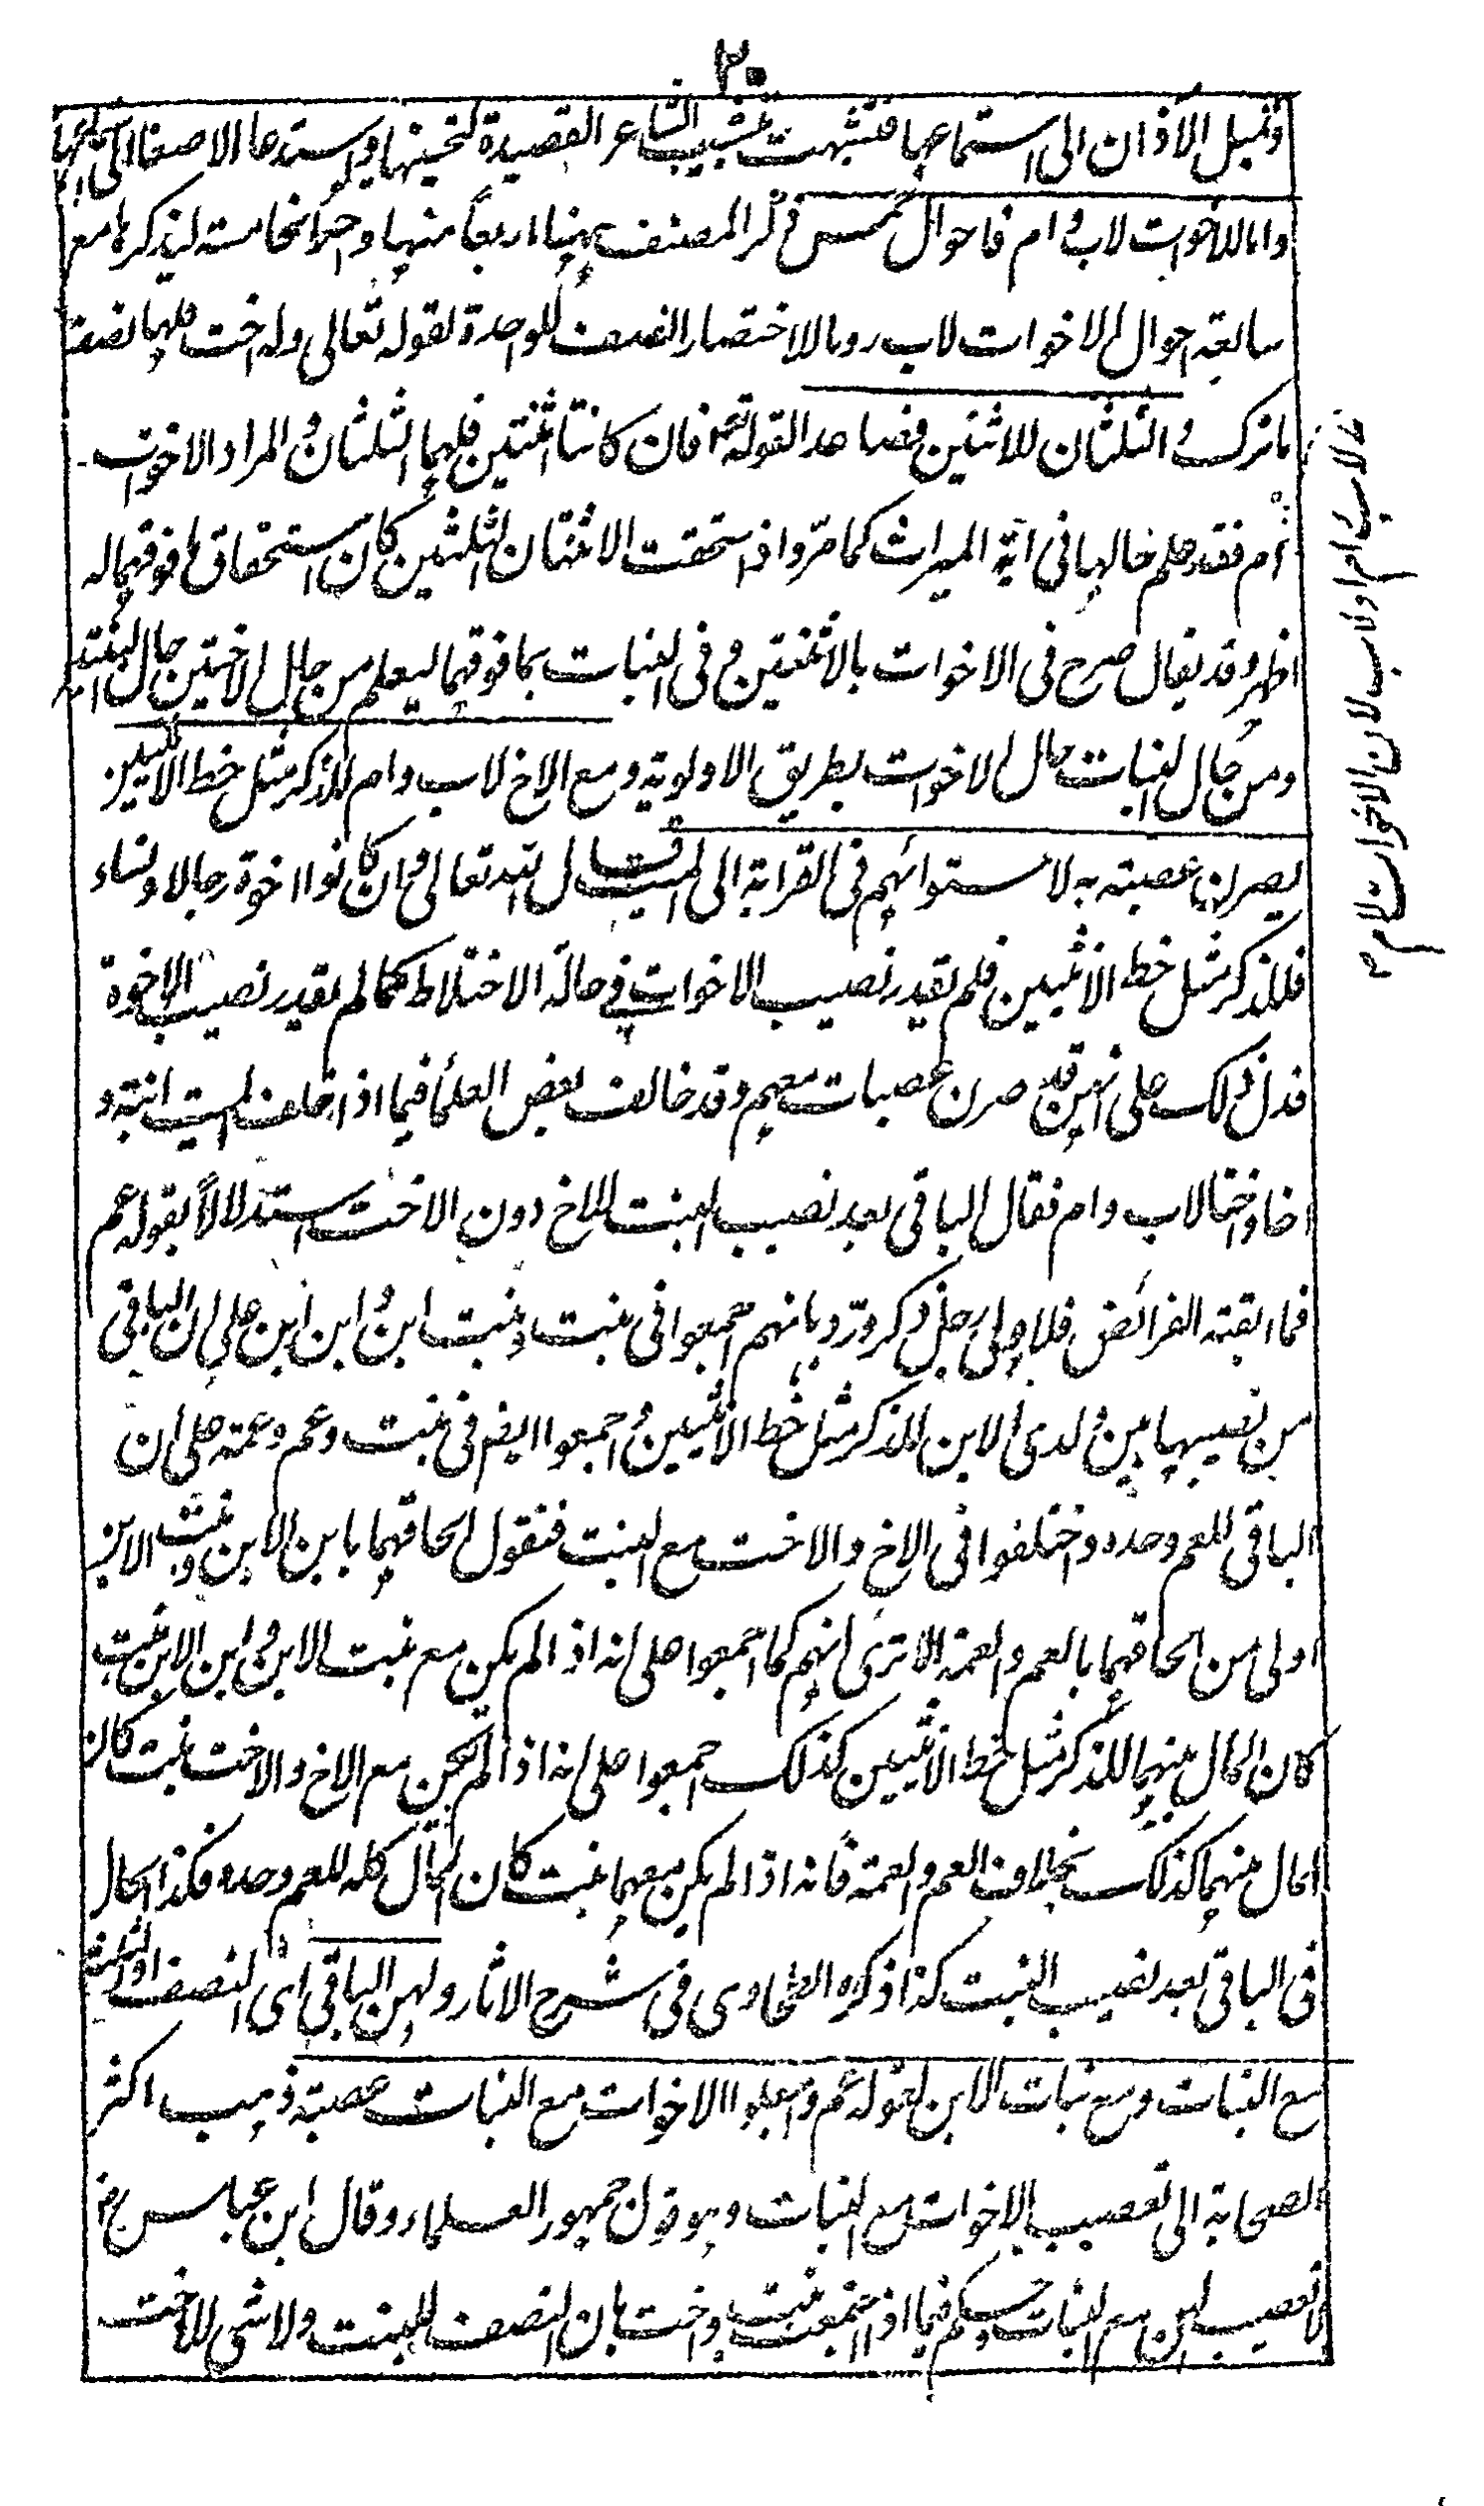 ٣٠
وتميل الآذان الى استماعها فشبهت بتشبيب الشاعر القصيدة لتحسينها واستدعا الاصغا الى استماعها
واما للاخوات لاب وام فاحوال خمس ذكر المصنف ههنا اربعاً منها واخر الخامسة ليذكرها مع
سابعة احوال الاخوات لاب روما للاختصار النصف للواحدة لقوله تعالى وله اخت فلها نصف
ما ترك والثلثان للاثنتين فصاعدا لقوله تعالى فان كانتا اثنتين فلهما الثلثان والمراد الاخوات
ام فقد علم حالها فى آية الميراث كما مرّ واذ استحقت الاثنتان الثلثين كان استحقاق ما فوقهما له
اظهر وقد يقال صرح فى الاخوات بالاثنتين وفى البنات بما فوقهما ليعلم من حال الاختين حال البنتين
ومن حال البنات حال الاخوات بطريق الاولوية ومع الاخ لاب وام للذكر مثل حظ الانثيين
يصرن عصبته به لاستوائهم فى القرابة الى الميت قال الله تعالى وان كانوا اخوة رجالا ونساء
فللذكر مثل حظ الانثيين فلم يقدر نصيب الاخوات فى حالة الاختلاط كما لم يقدر نصيب الاخوة
فدل ذلك على انهن قد صرن عصبات معهم وقد خالف بعض العلماء فيما اذا خلف الميت ابنته و
اخا واختا لاب وام فقال الباقى بعد نصيب البنت للاخ دون الاخت استدلالاً بقوله عم
فما ابقته الفرائض فلاولى رجل ذكر وردّ بانهم اجمعوا فى بنت وبنت ابن وابن ابن على ان الباقى
من نصيبها بين ولدى الابن للذكر مثل حظ الانثيين واجمعوا ايضم فى بنت وعم وعمة على ان
الباقى للعم وحده واختلفوا فى الاخ والاخت مع البنت فنقول الحاقهما بابن الابن وبنت الابن
اولى من الحاقهما بالعم والعمة الا ترى انهم كما اجمعوا على انه اذا لم يكن مع بنت الابن وابن الابن بنت
كان المال بينهما للذكر مثل حظ الانثيين كذلك اجمعوا على انه اذا لم يكن مع الاخ والاخت بنت كان
المال بينهما كذلك بخلاف العم والعمة فانه اذا لم يكن معهما بنت كان المال كله للعم وحده فكذا الحال
فى الباقى بعد نصيب البنت كذا ذكره الطحاوى فى شرح الاثار ولهن الباقى اى النصف او الثلث
مع البنات ومع بنات الابن لقوله عم واجعلوا الاخوات مع البنات عصبة ذهب اكثر
الصحابة الى تعصيب الاخوات مع البنات وهو قول جمهور العلماء وقال ابن عباس رض
لا تعصيب لهن مع البنات وحكم فيما اذا اجتمعت بنت واخت بان النصف للبنت ولا شئ للاخت
لاب ام او لاب لان الاخوات لام